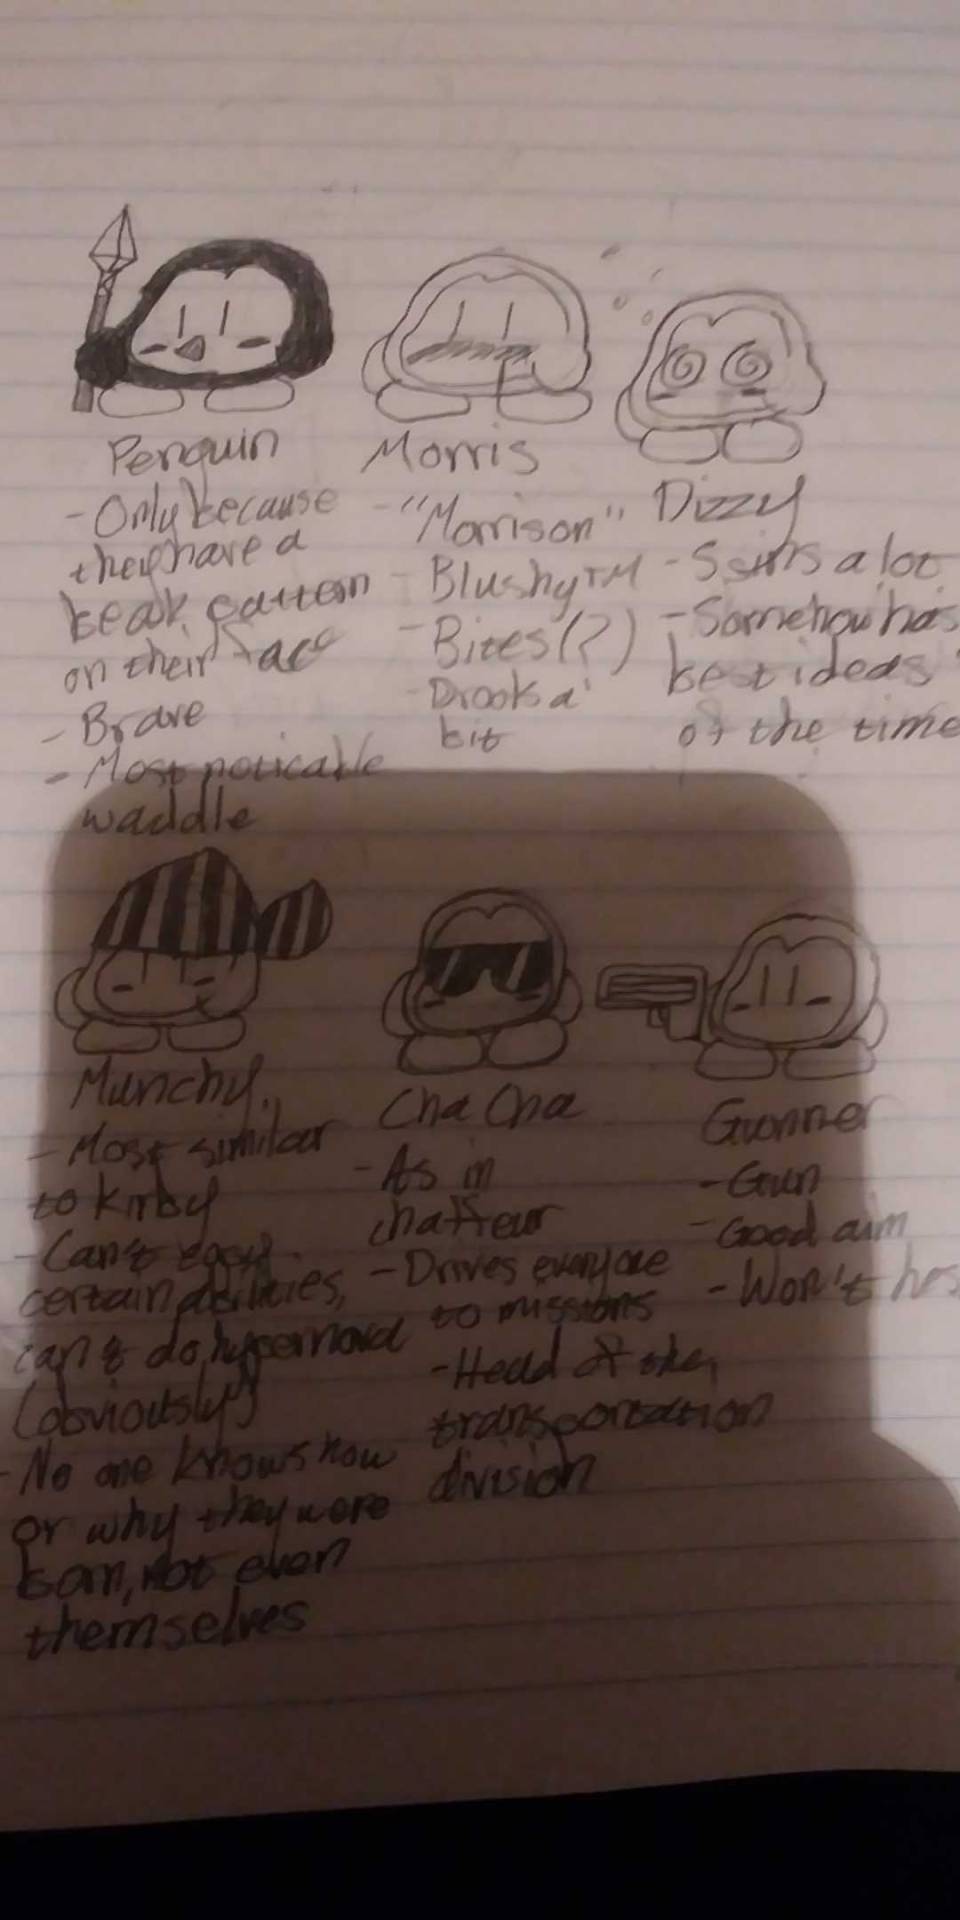 Penguin
- Only because
they have a
beak pattern
on their face
- Brave
- Most noticable
waddle
Morris
- "Morrison"
- Blushy TM
- Bites (?)
- Drools a
bit
Dizzy
- Spins a lot
- Somehow has
best ideas
of the time
Munchy
- Most similar
to Kirby
- Can't copy
certain abilities,
can't do hypernova
(obviously)
- No one knows how
or why they were
born, not even
themselves
Cha Cha
- As in
chaffeur
- Drives everyone
to missions
- Head of the
transportation
division
Gunner
- Gun
- Good aim
- Won't